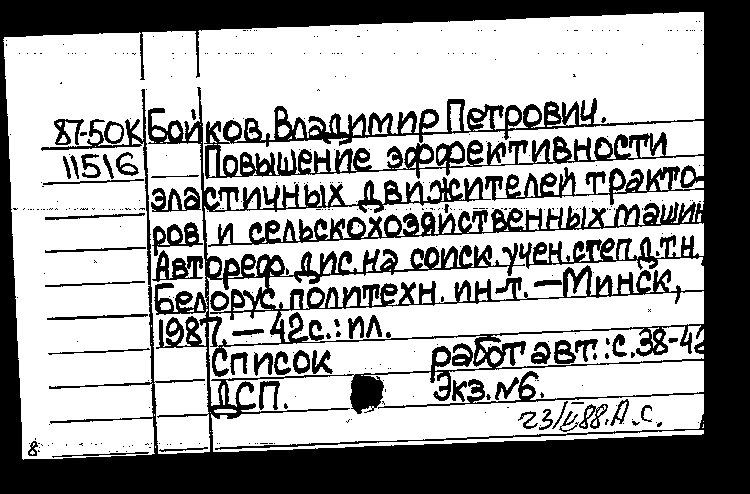 87-50К Бойков, Владимир Петрович.
11516 Повышение эффективности
эластичных движителей тракто-
ров и сельскохозяйственных машин
Автореф. дис. на соиск. учен. степ. д.т.н.,
Белорус. политехн. ин-т. — Минск,
1987. — 42с.: ил.
Список работ авт.: с. 38-42
ДСП. Экз. №6.
А.С.
8